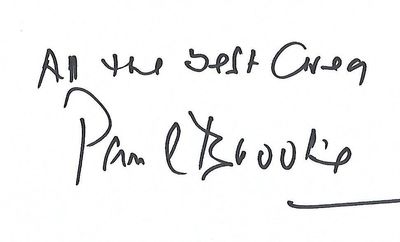 All the best Greg
Paul Brooke